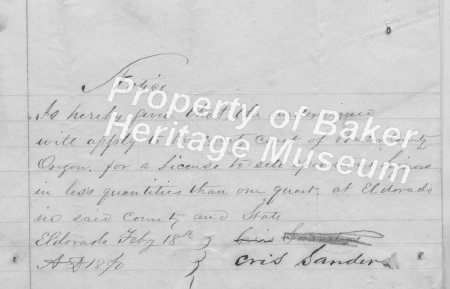 Notice
Is hereby given that the
will apply to the court of county
Oregon. for a License to sell
in less quantities than one quart, at Eldorado
in said County and State
Eldorado Feby 18th
A D 18
Cris Sanders
Property of Baker
Heritage Museum